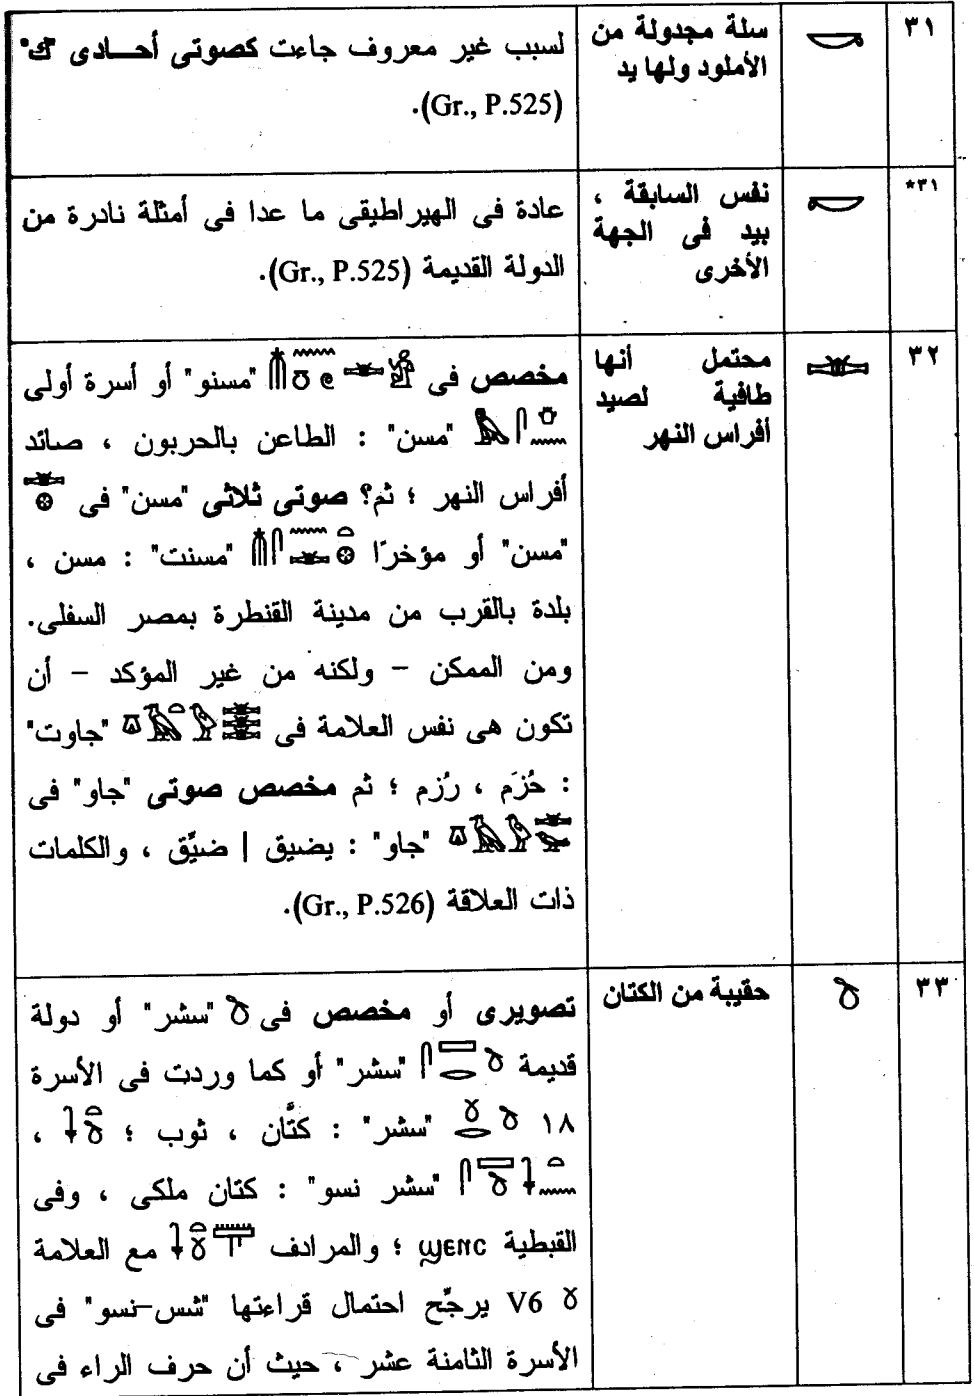 ٣١
سلة مجدولة من
الأملود ولها يد
لسبب غير معروف جاءت كصوتى أحادى "ك"
(Gr., P.525).
٣١*
نفس السابقة ،
بيد فى الجهة
الأخرى
عادة فى الهيراطيقى ما عدا فى أمثلة نادرة من
الدولة القديمة (Gr., P.525).
٣٢
محتمل أنها
طافية لصيد
أفراس النهر
مخصص فى "مسنو" أو أسرة أولى
"مسن" : الطاعن بالحربون ، صائد
أفراس النهر ؛ ثم؟ صوتى ثلاثى "مسن" فى
"مسن" أو مؤخرًا "مسنت" : مسن ،
بلدة بالقرب من مدينة القنطرة بمصر السفلى.
ومن الممكن – ولكنه من غير المؤكد – أن
تكون هى نفس العلامة فى "جاوت"
: حُزَم ، رُزم ؛ ثم مخصص صوتى "جاو" فى
"جاو" : يضيق | ضيِّق ، والكلمات
ذات العلاقة (Gr., P.526).
٣٣
حقيبة من الكتان
تصويرى أو مخصص فى "سشر" أو دولة
قديمة "سشر" أو كما وردت فى الأسرة
١٨ "سشر" : كتَّان ، ثوب ؛ ،
"سشر نسو" : كتان ملكى ، وفى
القبطية ϣⲉⲛⲥ ؛ والمرادف مع العلامة
V6 يرجِّح احتمال قراءتها "شس–نسو" فى
الأسرة الثامنة عشر ، حيث أن حرف الراء فى